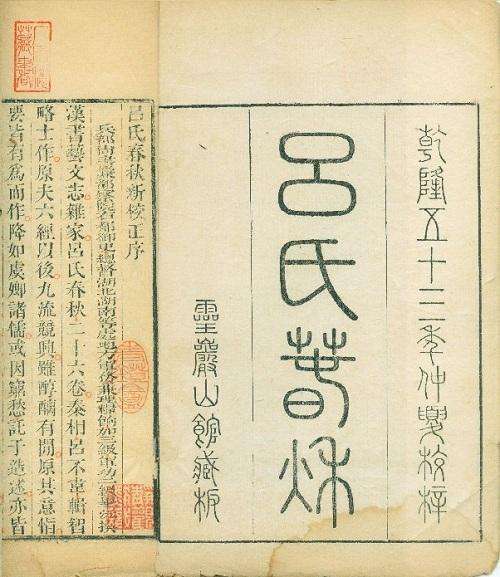 乾隆五十三年仲夏校梓
呂氏春秋
靈巖山館藏板
呂氏春秋新校正序
兵部尚書兼都察院右都御史總督湖北湖南等處地方軍務兼理糧餉加三級軍功二級畢沅撰
漢書藝文志雜家呂氏春秋二十六卷秦相呂不韋輯智
略士作原夫六經以後九流競興雖醇醨有間原其意恉
要皆有為而作降如虞卿諸儒或因窮愁託于造述亦皆